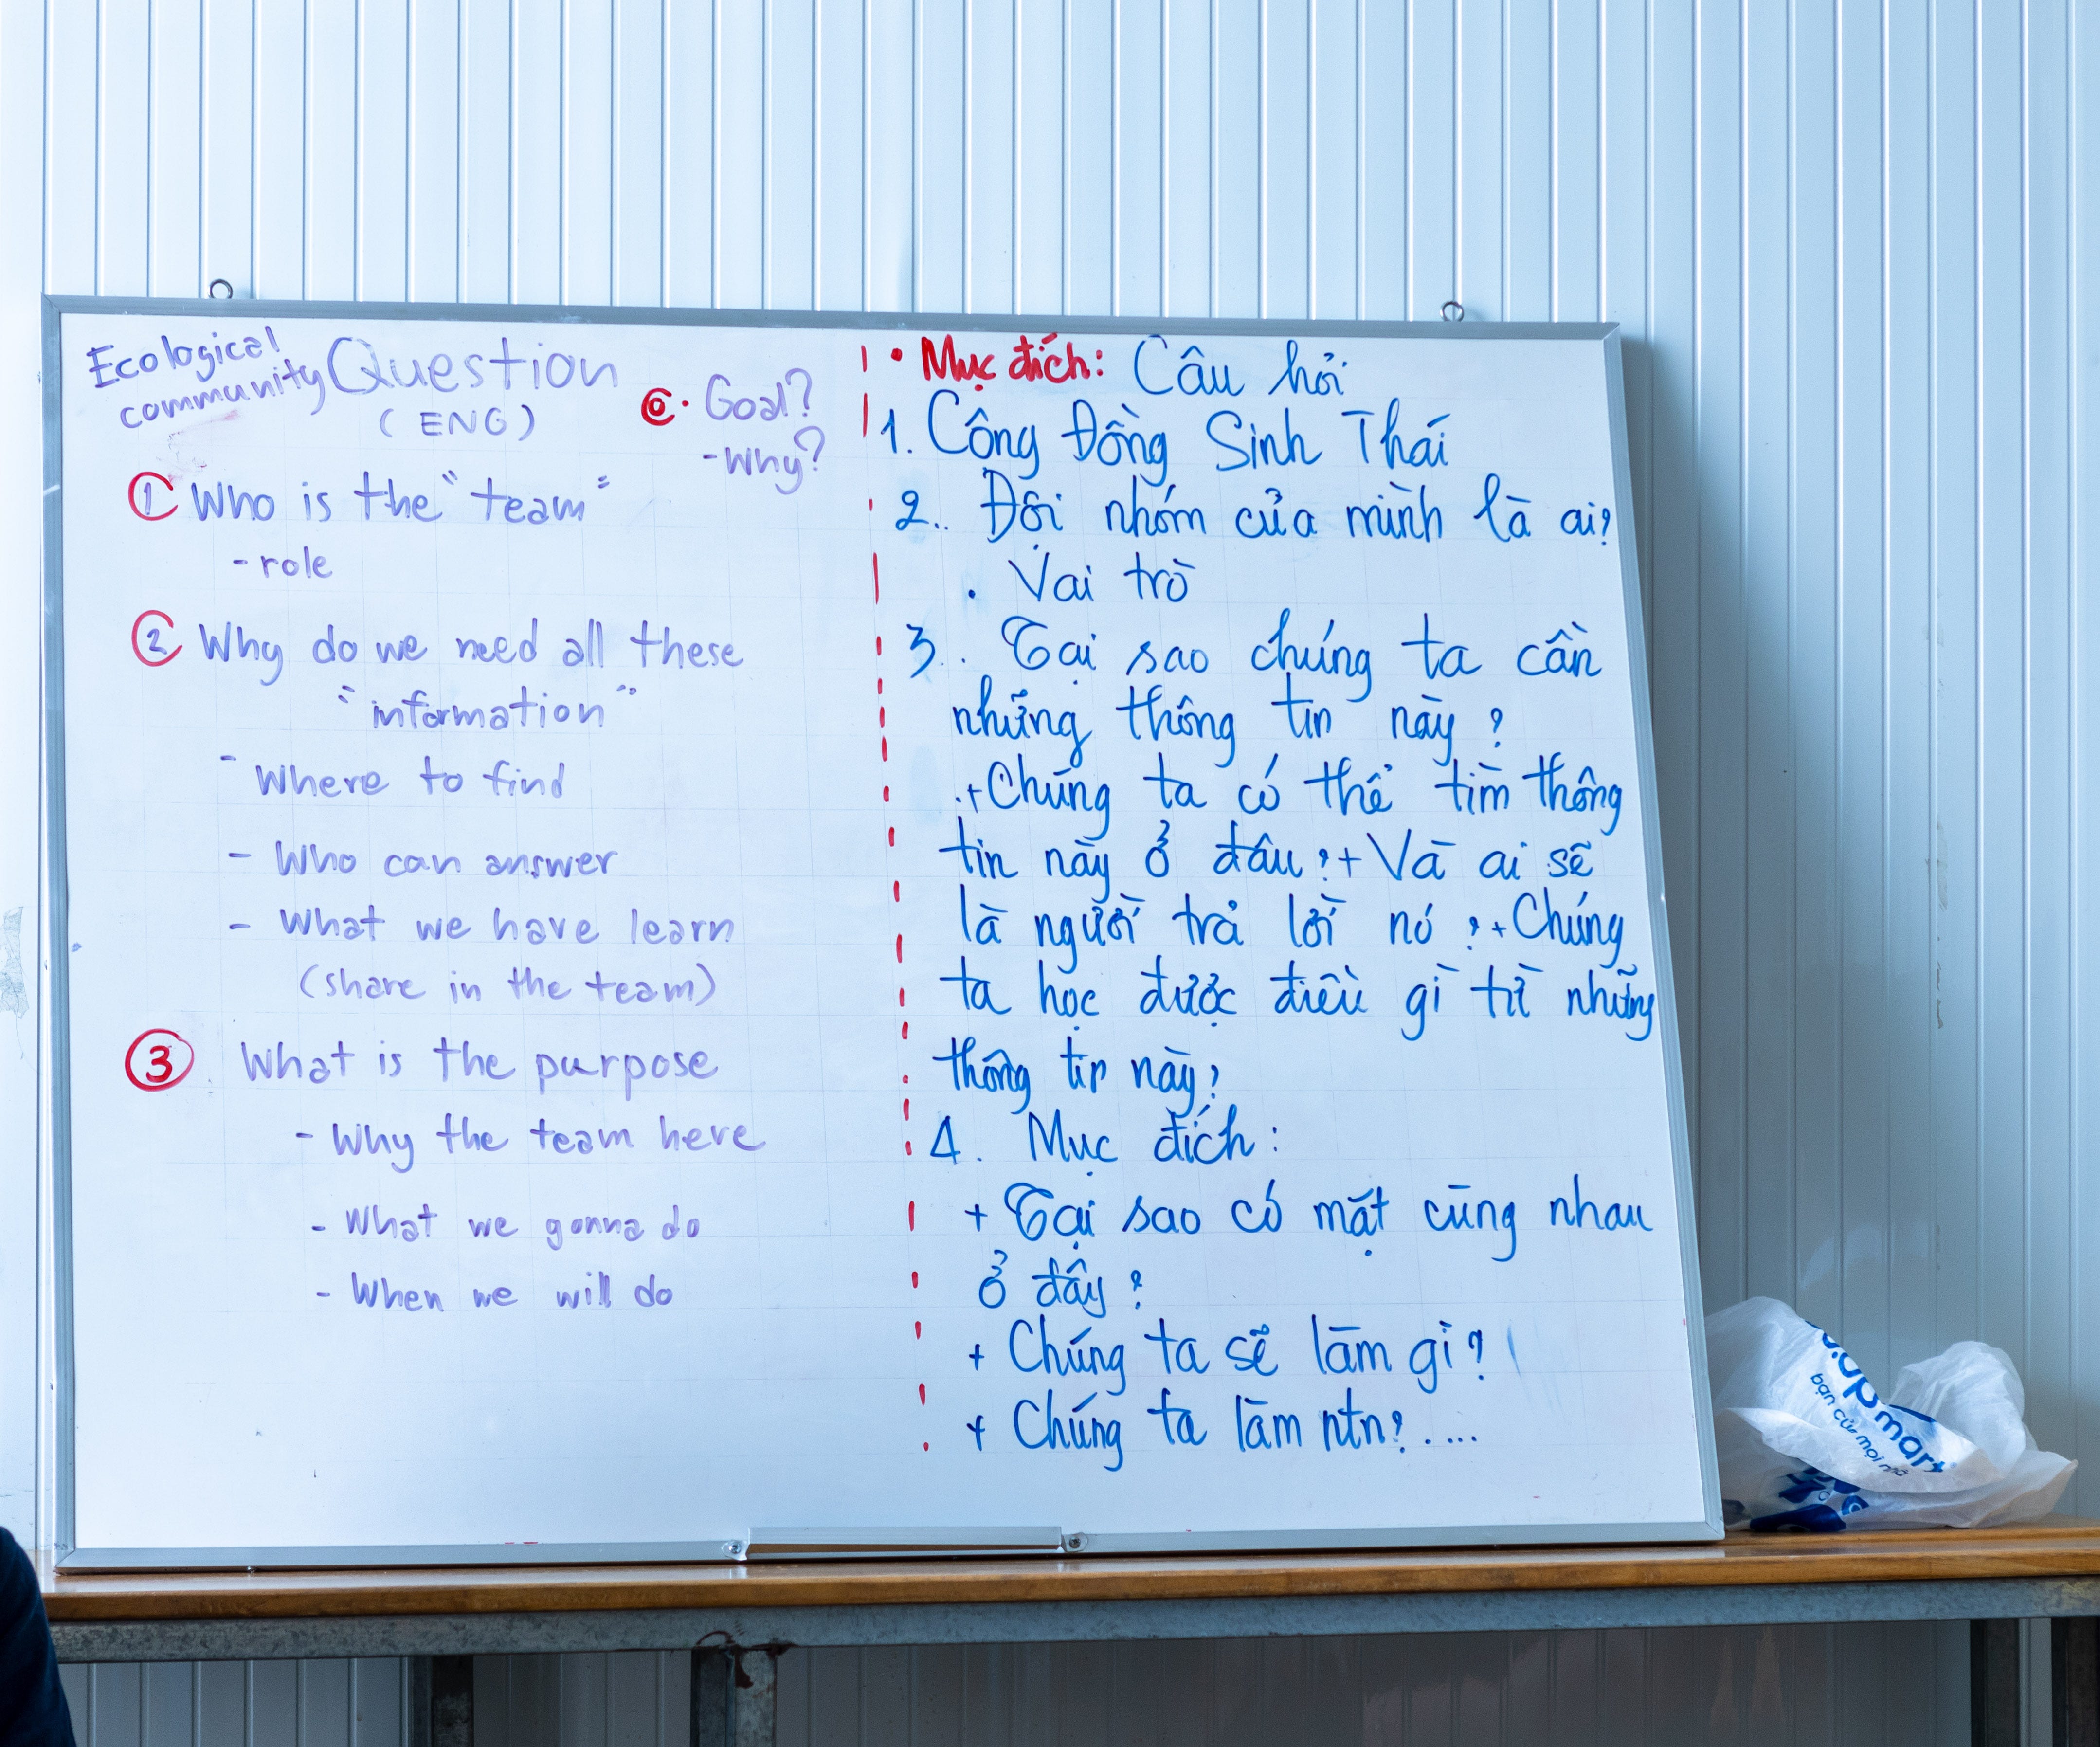 Ecological
community
Question
(ENG)
⓪. Goal?
-Why?
① Who is the "team"
- role
② Why do we need all these
"information"
- Where to find
- Who can answer
- What we have learn
(share in the team)
③ What is the purpose
- Why the team here
- What we gonna do
- When we will do
• Mục đích: Câu hỏi
1. Công Đồng Sinh Thái
2.. Đội nhóm của mình là ai?
. Vai trò
3.. Tại sao chúng ta cần
những thông tin này?
.+Chúng ta có thể tìm thông
tin này ở đâu?+ Và ai sẽ
là người trả lời nó?+ Chúng
ta học được điều gì từ những
thông tin này?
4. Mục đích:
+ Tại sao có mặt cùng nhau
ở đây?
+ Chúng ta sẽ làm gì?
+ Chúng ta làm ntn?....
.opmart
bạn của mọi nhà